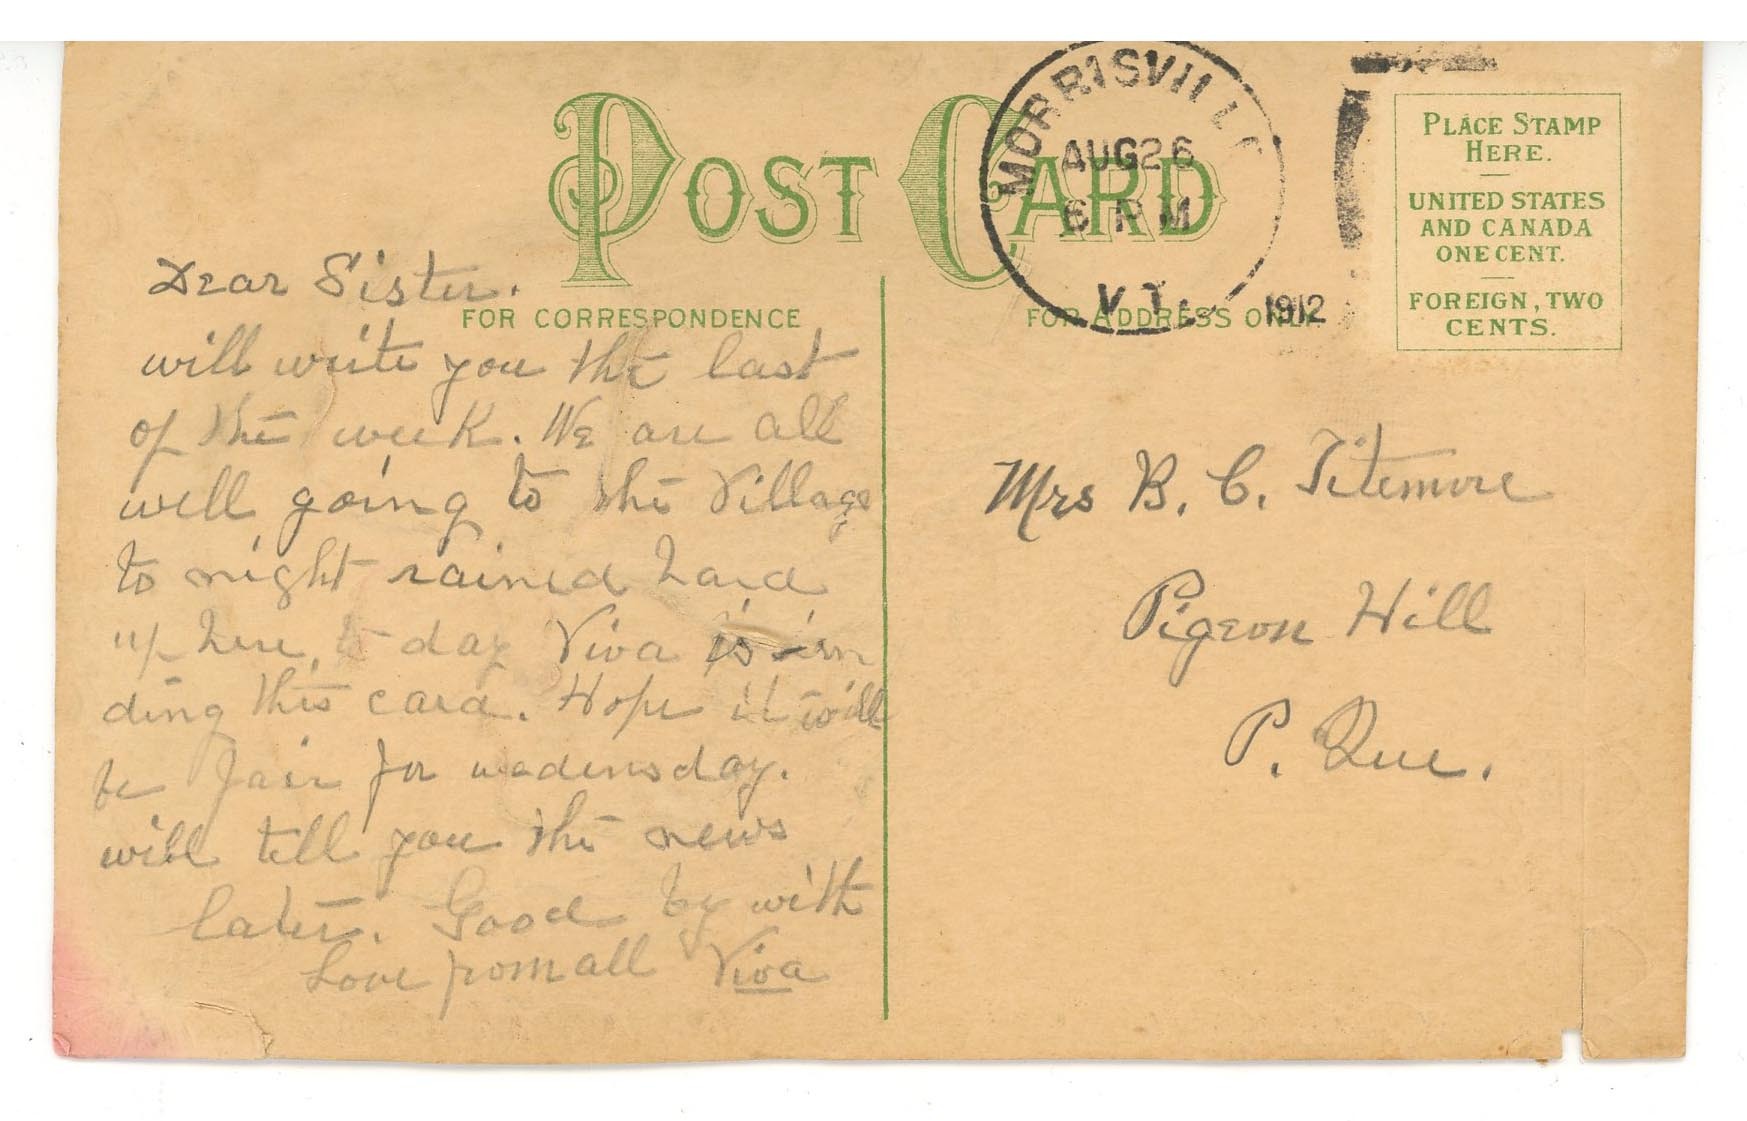 POST CARD
FOR CORRESPONDENCE
Dear Sister.
will write you the last
of the week. We are all
well going to the Village
to night rained hard
up here to day Viva is sen
ding this card. Hope it will
be fair for wedensday.
will tell you the news
later. Good by with
Love from all Viva
MORRISVILLE
AUG 26
6 PM
VT.
1912
FOR ADDRESS ONLY
PLACE STAMP
HERE.
UNITED STATES
AND CANADA
ONE CENT.
FOREIGN, TWO
CENTS.
Mrs B. C. Titemore
Pigeon Hill
P. Que.